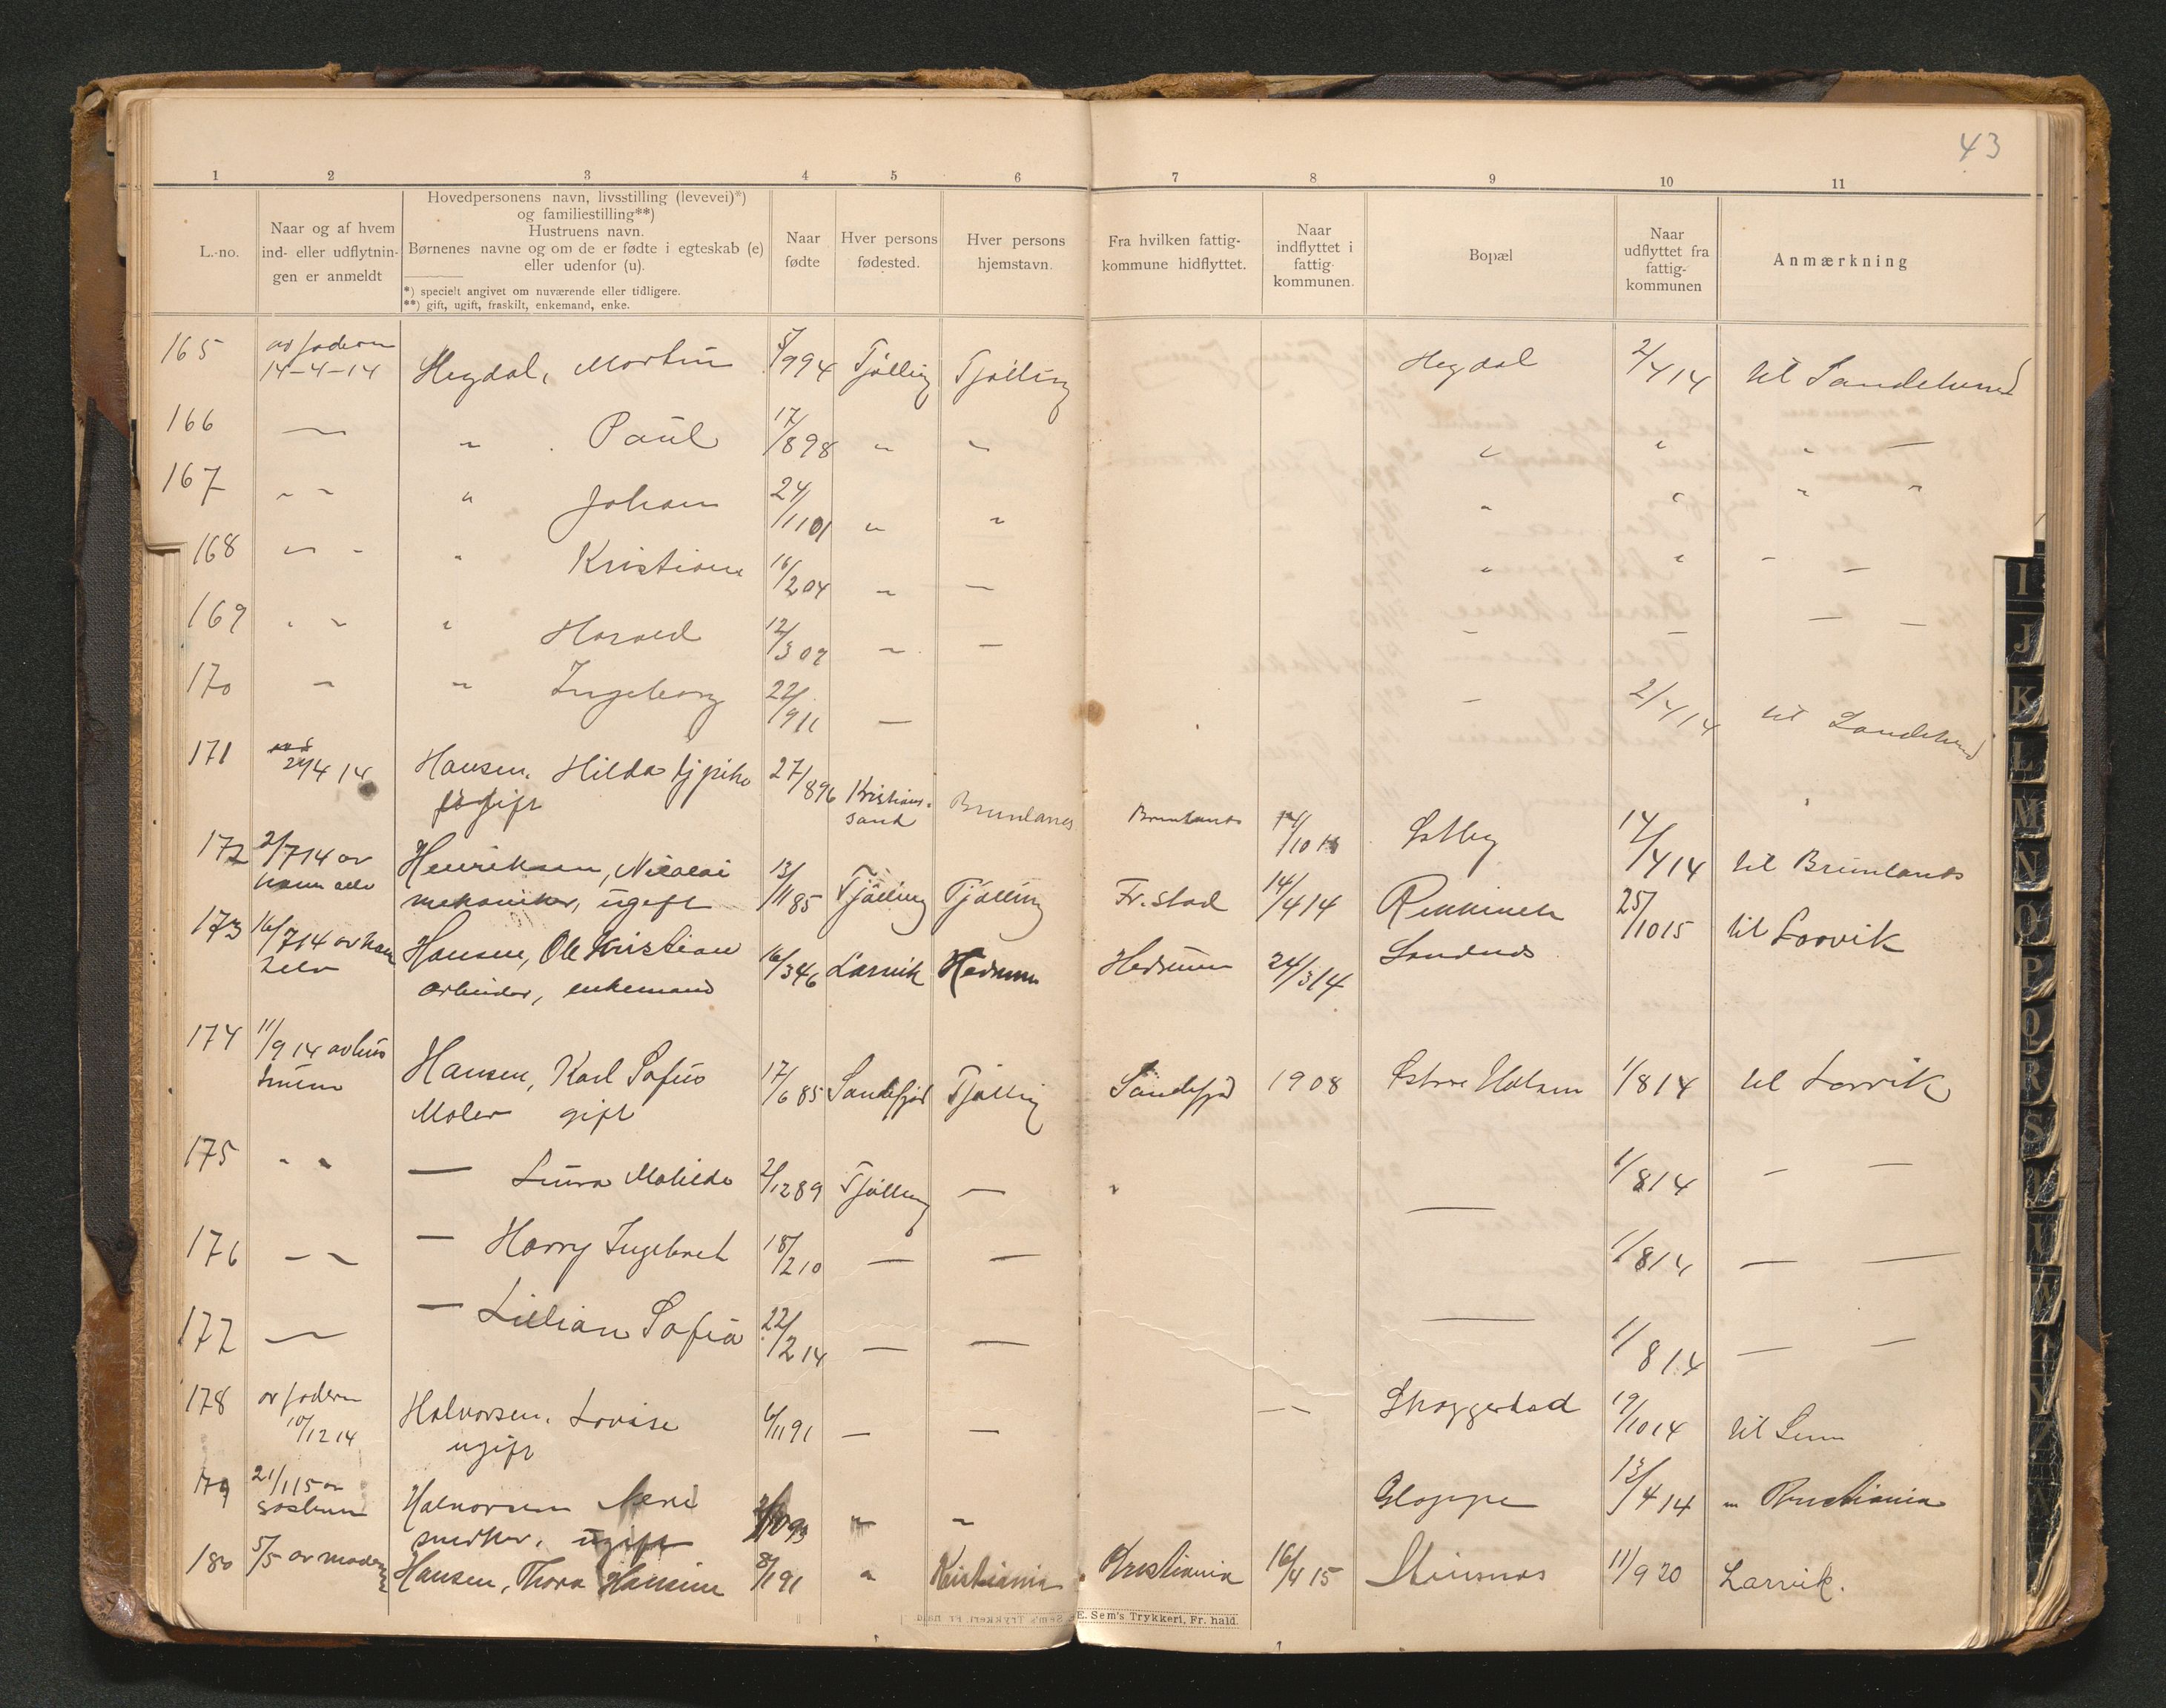 43
1 2 3 4 5 6 7 8 9 10 11
L.-no.
Naar og af hvem
ind- eller udflytnin-
gen er anmeldt
Hovedpersonens navn, livsstilling (levevei)*)
og familiestilling**)
Hustruens navn.
Børnenes navne og om de er fødte i egteskab (e)
eller udenfor (u).
*) specielt angivet om nuværende eller tidligere.
**) gift, ugift, fraskilt, enkemand, enke.
Naar
fødte
Hver persons
fødested.
Hver persons
hjemstavn.
Fra hvilken fattig-
kommune hidflyttet.
Naar
indflyttet i
fattig-
kommunen.
Bopæl
Naar
udflyttet fra
fattig-
kommunen
Anmærkning
165 av faderen 14-4-14 Hegdal, Martin 5/9 94 Tjølling Tjølling Hegdal 2/4 14 til Sandeherred
166 — " Paul 17/8 98 " " " " " —
167 " " " Johan 24/1 01 " " " " " "
168 " " " Kristiane 16/2 04 " — " " — —
169 " " " Harald 12/3 09 " — — — — —
170 " " Ingeborg 22/9 11 — — 2/4 14 til Sandeherred
171 24/4 14 Hansen, Hilda tjpike 27/8 96 Kristian- Brunlanes Brunlanes 14/10 13 Østby 14/4 14 til Brunlanes
ugift sand
172 2/7 14 av Henriksen, Nicolai 13/11 85 Tjølling Tjølling Fr.stad 14/4 14 25/10 15 til Larvik
ham selv mekaniker, ugift
173 16/7 14 av ham Hansen, Ole Kristian 16/3 46 Larvik Hedrum Hedrum 24/3 14 Sandnes
selv arbeider, enkemand
174 11/9 14 av hus Hansen, Karl Sofus 17/6 85 Sandefjord Tjølling Sandefjord 1908 Østre Halsen 1/8 14 til Larvik
truen Maler gift
175 " " — Laura Matilde 2/12 89 Tjølling — " — 1/8 14 — —
176 — " — Harry Ingebret 18/2 10 — — 1/8 14 — —
177 — — Lillian Sofia 22/2 14 — — — 1/8 14 — —
178 av faderen Halvorsen, Lovise 6/11 91 — — — Skaggestad 19/10 14 til Sem
10/12 14 ugift
179 21/1 15 av Halvorsen 93 " " Gloppe 13/4 14 " Kristiania
søsteren snedker, ugift
180 5/5 av moderen Hansen, Thora Hansine 8/1 91 " Kristiania Kristiania 16/4 15 11/9 20 Larvik.
E. Sem's Trykkeri, Fr. hald.
I
J
K
L
M
N
O
P
Q
R
S
T
U
W
Y
Z